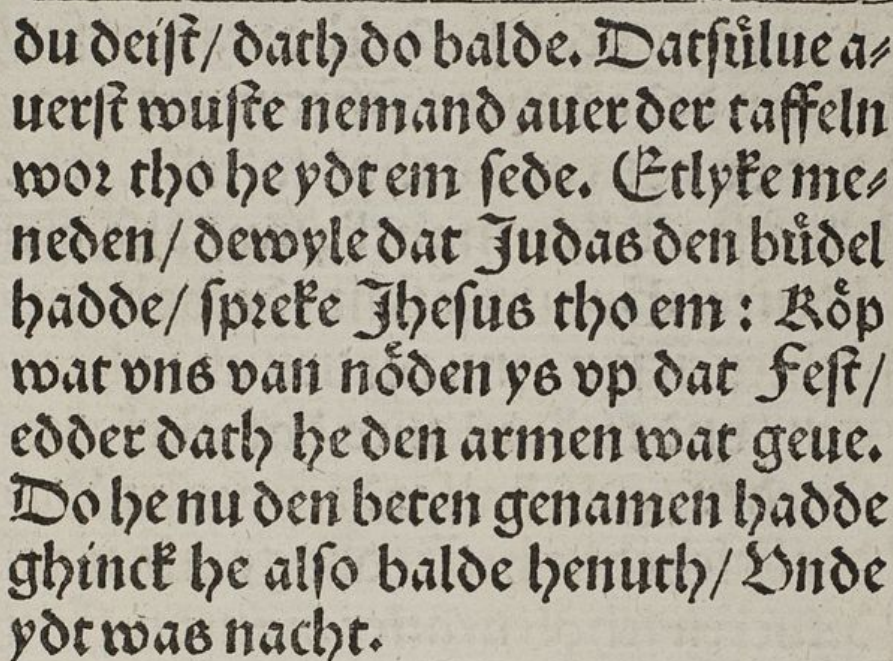 du deiſt/ dath do balde. Datſuͤlue a⸗
uerſt wuſte nemand auer der taffeln
wor tho he ydt em ſede. Etlyke me⸗
neden/ dewyle dat Judas den buͤdel
hadde/ ſpreke Jheſus tho em : Koͤp
wat vns van noͤden ys vp dat Feſt/
edder dath he den armen wat geue.
Do he nu den beten genamen hadde
ghinck he alſo balde henuth/ Vnde
ydt was nacht.